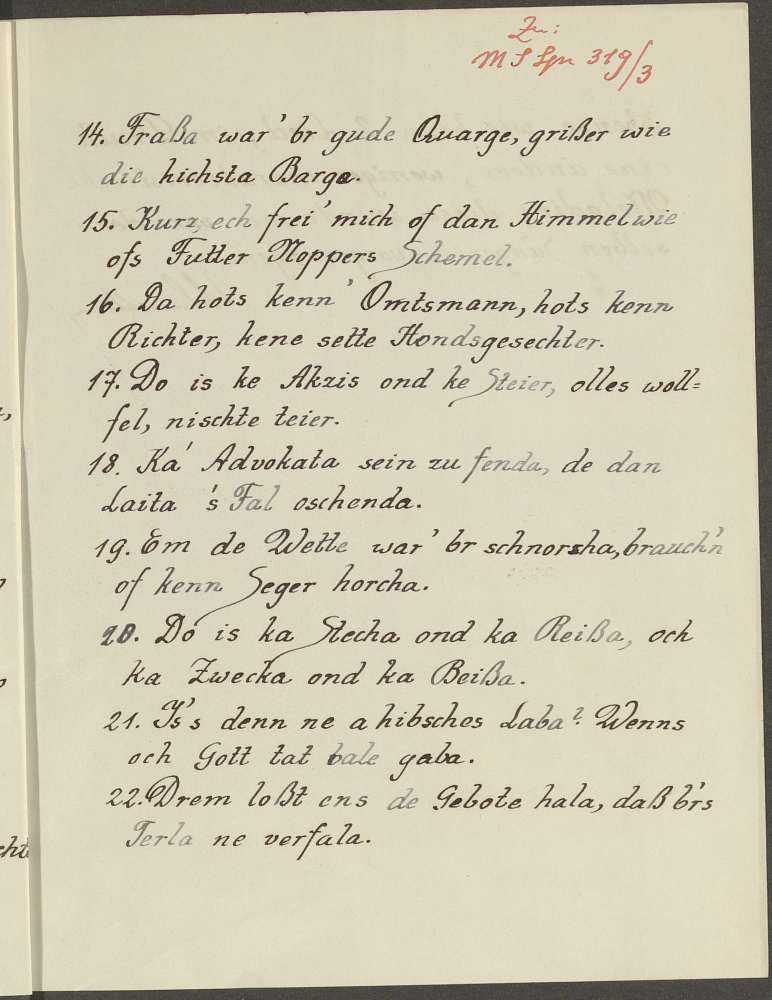 Zu:
M S Spr 319/3
14. Fraßa war' br gude Quarge, grißer wie
die hichsta Barge.
15. Kurz, ech frei' mich of dan Himmel wie
ofs Futter Noppers Schemel.
16. Da hots kenn' Omtsmann, hots kenn
Richter, kene sette Hondsgesechter.
17. Do is ke Akzis ond ke Steier, olles woll=
fel, nischte teier.
18. Ka' Advokata sein zu fenda, de dan
Laita 's Fal oschenda.
19. Em de Wette war' br schnorsha, brauch'n
of kenn Seger horcha.
20. Do is ka Stecha ond ka Reißa, och
ka Zwecka ond ka Beißa.
21. Is's denn ne a hibsches Laba? Wenns
och Gott tat bale gaba.
22. Drem loßt ens de Gebote hala, daß br's
Terla ne verfala.